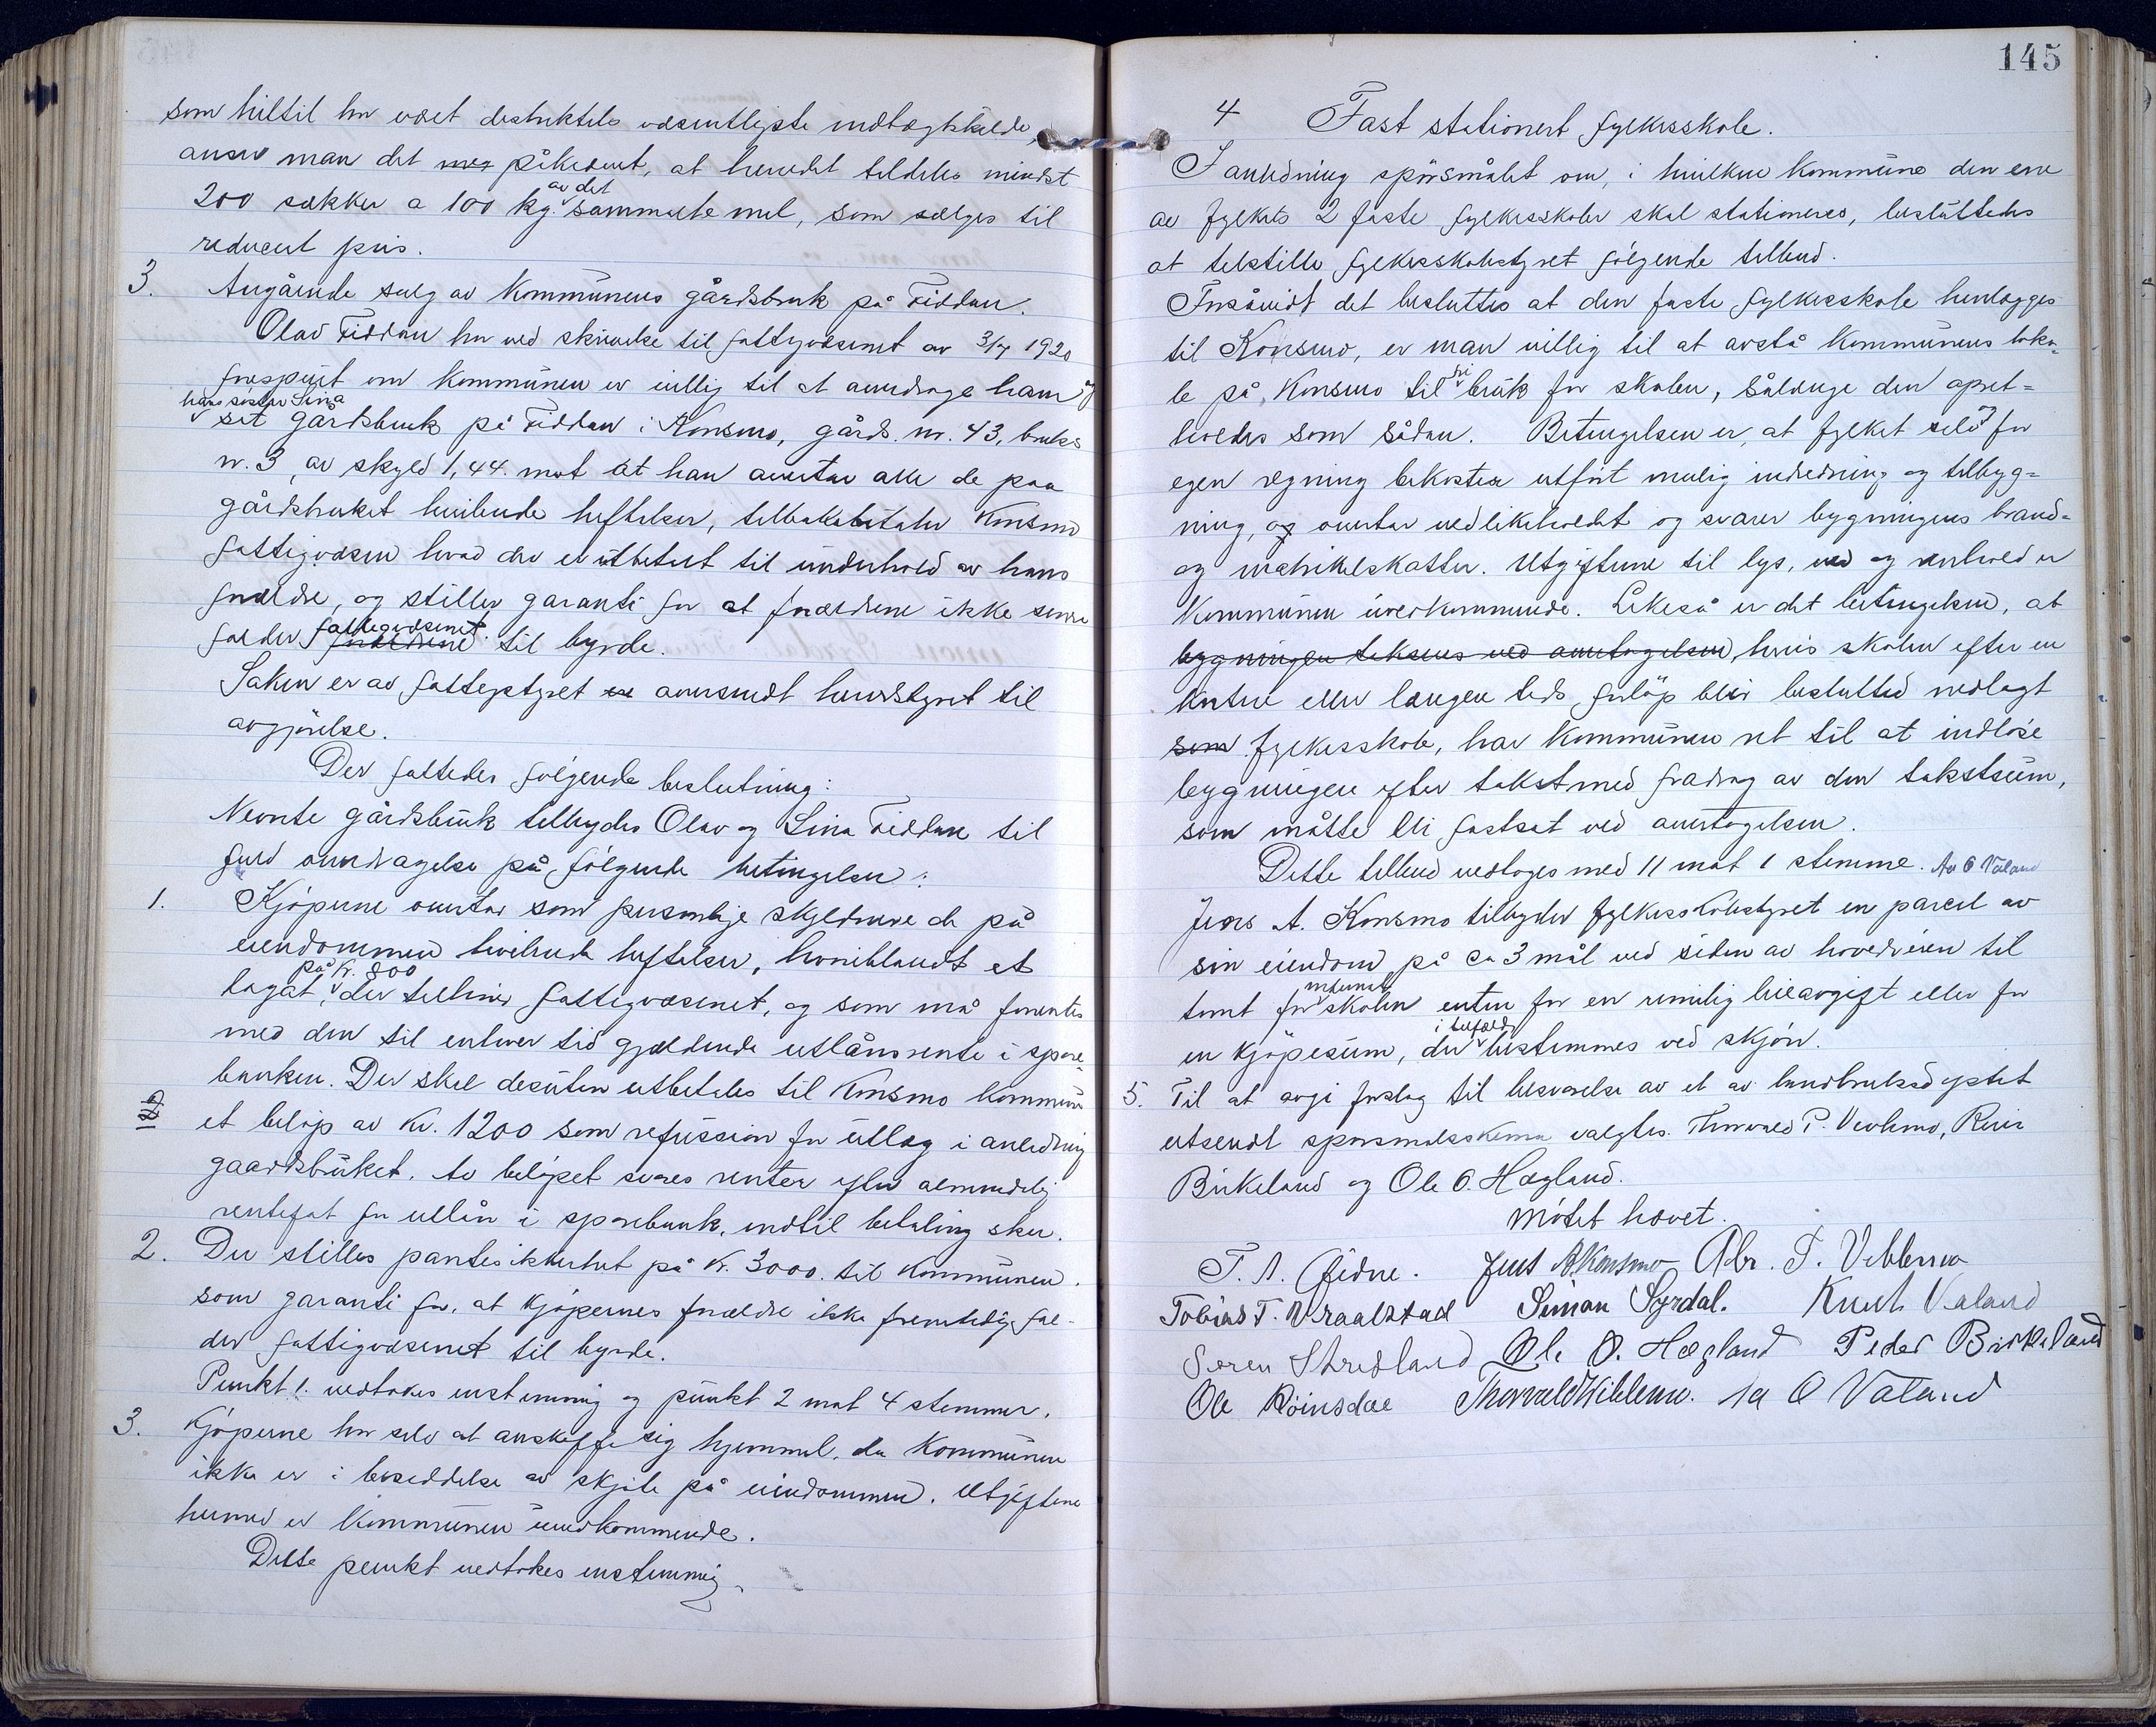 som hittil har været distriktets væsentligste indtægtskilde,
anser man det meg påkrævet, at herredet tildeles mindst
200 sækker a 100 kg. av det sammalte mel, som sælges til
reducert pris.
3. Angående salg av kommunens gårdsbruk på Fiddan.
Olav Fiddan har ved skrivelse til fattigvæsenet av 3/7 1920
forespurt om kommunen er villig til at avhndrage ham og
hans søster Sina
sit gårdsbruk på Fiddan i Konsmo, gårds. nr. 43, bruks
nr. 3, av skyld 1,44. mot at han overtar alle de paa
gårdsbruket hvilende heftelser, tilbakebetaler Konsmo
fattigvæsen hvad der er utbetalt til underhold av hans
forældre, og stiller garanti for at forældrene ikke senere
falder fattigvæsenet forældrene til byrde.
Saken er av fattigstyret er oversendt herredstyret til
avgjørelse.
Der fattedes følgende beslutning:
Nevnte gårdsbruk tilbydes Olav og Sina Fiddan til
fuld overdragelse på følgende betingelser:
1. Kjøperne overtar som personlige skyldnere de på
eiendommen hvilende heftelser, hvoriblandt et
på kr. 800
legat, der tilhører fattigvæsenet, og som må forrentes
med den til enhver tid gjældende utlånsrente i spare-
banken. Der skal desuten utbetales til Konsmo kommune
et beløp av kr. 1200 som refusion for utlæg i anledning
gaardsbruket. Av beløpet svares renter efter almindelig
rentefot for utlån i sparebank, indtil betaling sker.
2. Der stilles pantesikkerhet på kr. 3000. til kommunen.
som garanti for, at kjøpernes forældre ikke fremtidig fal-
der fattigvæsenet til byrde.
Punkt 1. vedtokes enstemmig og punkt 2 mot 4 stemmer.
3. Kjøperne har selv at anskaffe sig hjemmel, da kommunen
ikke er i besiddelse av skjøte på eiendommen. Utgiftene
herved er kommunen uvedkommende.
Dette punkt vedtokes enstemmig
145
4 Fast stationert fylkesskole.
I anledning spørsmålet om, i hvilken kommune den ene
av fylkets 2 faste fylkesskoler skal stationeres, besluttedes
at tilstille fylkesskolestyret følgende tilbud.
Forsåvidt det besluttes at den faste fylkesskole henlægges
til Konsmo, er man villig til at avstå kommunens loka-
le på Konsmo til fri bruk for skolen, sålænge den opret-
holdes som sådan. Betingelsen er, at fylket selv for
egen regning bekoster utført mulig indredning og tilbyg-
ning, og overtar vedlikeholdet og svarer bygningens brand-
og matrikelskatter. Utgiftene til lys, ved og renhold er
kommunen uvedkommende. Likeså er det betingelsen, at
bygningen takseres ved overtagelsen, hvis skolen efter en
kortere eller længere tids forløp blir besluttet nedlagt
som fylkesskole, har kommunen ret til at indløse
bygningen efter takst med fradrag av den takstsum,
som måtte bli fastsat ved overtagelsen.
Dette tilbud vedtoges med 11 mot 1 stemme. Aa O Våland
Jens A. Konsmo tilbyder fylkesskolestyret en parcel av
sin eiendom på ca 3 mål ved siden av hovedveien til
tomt for internat skolen enten for en rimelig leieavgift eller for
en kjøpesum, der i tilfælde bestemmes ved skjøn.
5. Til at avgi forslag til besvarelse av et av landbruksdeptet
utsendt spørsmålsskema valgtes. Thorvald P. Viblemo, Reier
Birkeland og Ole O. Hægland.
Møtet hævet.
T. A. Eidne. Jens A Konsmo Abr. T. Viblemo
Tobias T. Vraalstad Simon Syrdal. Knut Valand
Søren Stredland Ole O. Hægland Peder Birkeland
Ole Røinsdal Thorvald Viblemo. Aa O Våland